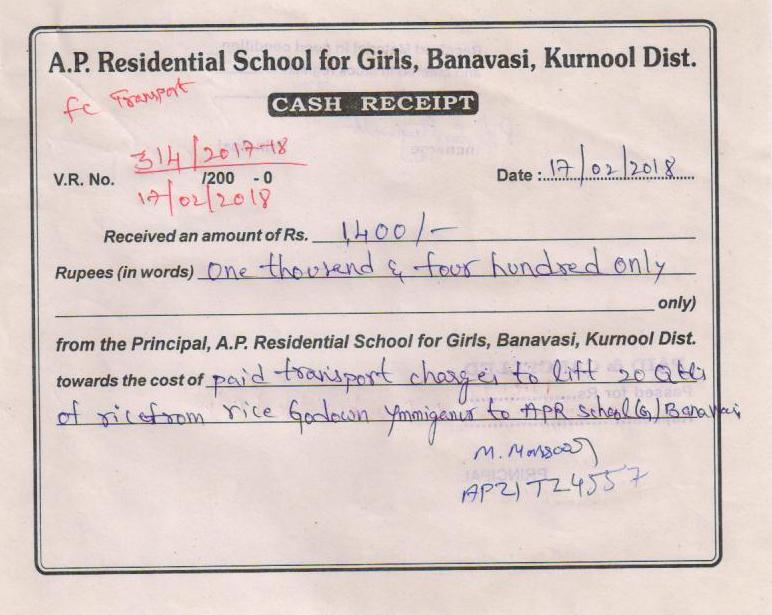 A.P. Residential School for Girls, Banavasi, Kurnool Dist.
fc Transport
CASH RECEIPT
314/2017-18
V.R. No. /200 - 0
17/02/2018
Date : 17/02/2018
Received an amount of Rs. 1,400/-
Rupees (in words) One thousand & four hundred only
only)
from the Principal, A.P. Residential School for Girls, Banavasi, Kurnool Dist.
towards the cost of paid transport charges to lift 20 Qtls
of rice from rice Godown Ymmiganur to APR School (G) Banavasi
M. Mansoor
AP21 T24557